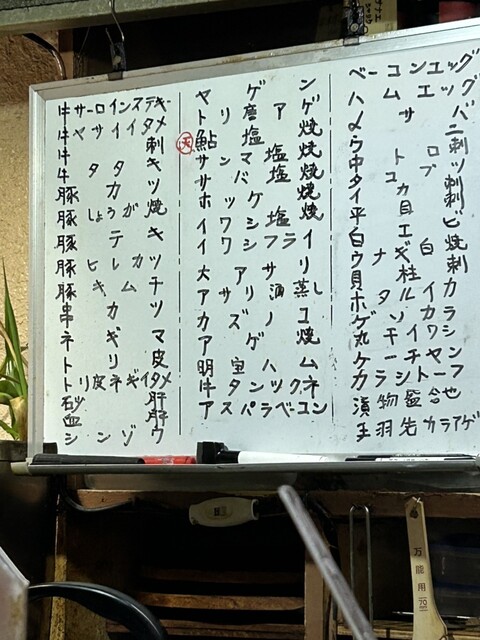 牛サーロインステーキ
牛ヤサイイタメ
牛刺
牛タタキ
豚カツ
豚しょうが焼
豚テキ
豚ヒレカツ
豚キムチ
串カツ
ネギマ
トリ皮
トリ皮ネギイタメ
砂肝
血肝
シンゾウ
ヤゲン
トリ唐アゲ
天鮎塩焼
サンマ塩焼
サバ塩焼
ホッケ焼
イワシ塩焼
イワシフライ
大アサリ
アサリ酒蒸し
カズノコ
アゲ焼
明宝ハム
アスパラベーコン
ベーコンエッグ
ハムエッグ
〆サバ
ウニ
中トロ刺
タコブツ
イカ刺
平貝刺
白エビ
ウナギ白焼
貝柱刺
ホタルイカ
ゲソカラ
丸干イワシ
漬物盛合
手羽先カラアゲ
万能用
70